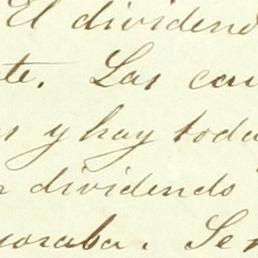 El dividend
te. Las cau
s y hay toda
dividendo
oraba. Se